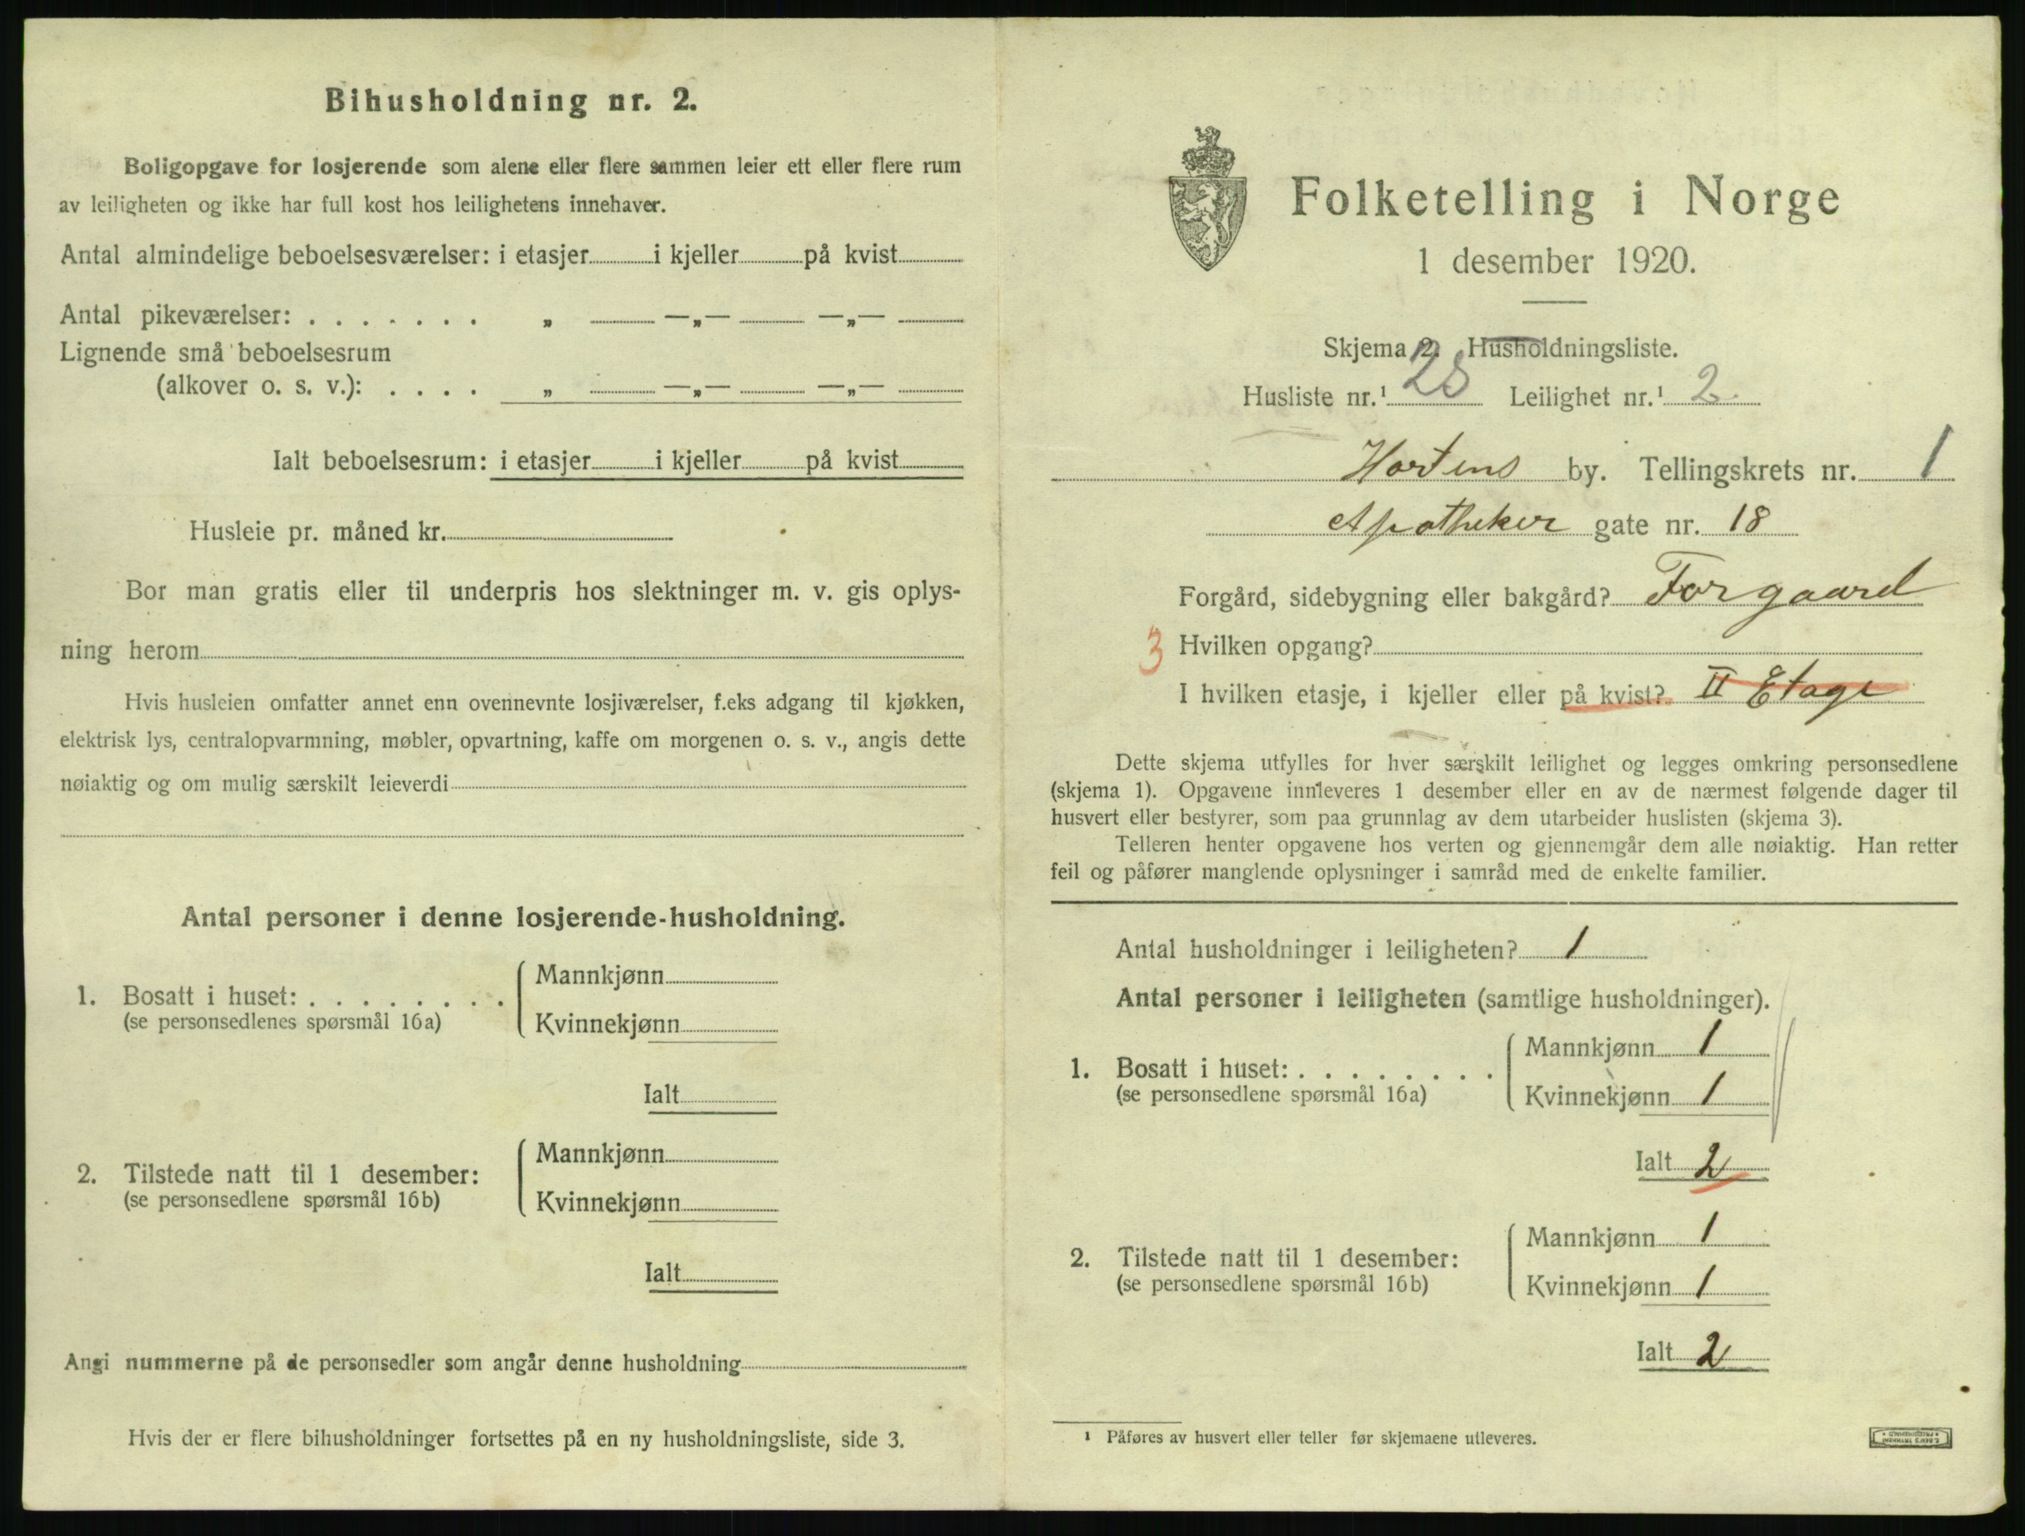 Bihusholdning nr. 2.
Boligopgave for losjerende som alene eller flere sammen leier ett eller flere rum
av leiligheten og ikke har full kost hos leilighetens innehaver.
Antal almindelige beboelsesværelser: i etasjer i kjeller på kvist
Antal pikeværelser: . . . . . . . „ —„— —„—
Lignende små beboelsesrum
(alkover o. s. v.): . . . . „ —„— —„—
Ialt beboelsesrum: i etasjer i kjeller på kvist
Husleie pr. måned kr.
Bor man gratis eller til underpris hos slektninger m. v. gis oplys-
ning herom
Hvis husleien omfatter annet enn ovennevnte losjiværelser, f.eks adgang til kjøkken,
elektrisk lys, centralopvarmning, møbler, opvartning, kaffe om morgenen o. s. v., angis dette
nøiaktig og om mulig særskilt leieverdi
Antal personer i denne losjerende-husholdning.
1. Bosatt i huset: . . . . . . . . Mannkjønn
(se personsedlenes spørsmål 16a) Kvinnekjønn
Ialt
2. Tilstede natt til 1 desember: Mannkjønn
(se personsedlene spørsmål 16b) Kvinnekjønn
Ialt
Angi nummerne på de personsedler som angår denne husholdning
Hvis der er flere bihusholdninger fortsettes på en ny husholdningsliste, side 3.
Folketelling i Norge
1 desember 1920.
Skjema 2. Husholdningsliste.
Husliste nr.¹ 28 Leilighet nr.¹ 2
Hortens by. Tellingskrets nr. 1
Apotheker gate nr. 18
Forgård, sidebygning eller bakgård? Forgaard
3 Hvilken opgang?
I hvilken etasje, i kjeller eller på kvist? II Etage
Dette skjema utfylles for hver særskilt leilighet og legges omkring personsedlene
(skjema 1). Opgavene innleveres 1 desember eller en av de nærmest følgende dager til
husvert eller bestyrer, som paa grunnlag av dem utarbeider huslisten (skjema 3).
Telleren henter opgavene hos verten og gjennemgår dem alle nøiaktig. Han retter
feil og påfører manglende oplysninger i samråd med de enkelte familier.
Antal husholdninger i leiligheten? 1
Antal personer i leiligheten (samtlige husholdninger).
1. Bosatt i huset: . . . . . . . . Mannkjønn 1
(se personsedlene spørsmål 16a) Kvinnekjønn 1
Ialt 2
2. Tilstede natt til 1 desember: Mannkjønn 1
(se personsedlene spørsmål 16b) Kvinnekjønn 1
Ialt 2
¹ Påføres av husvert eller teller før skjemaene utleveres.